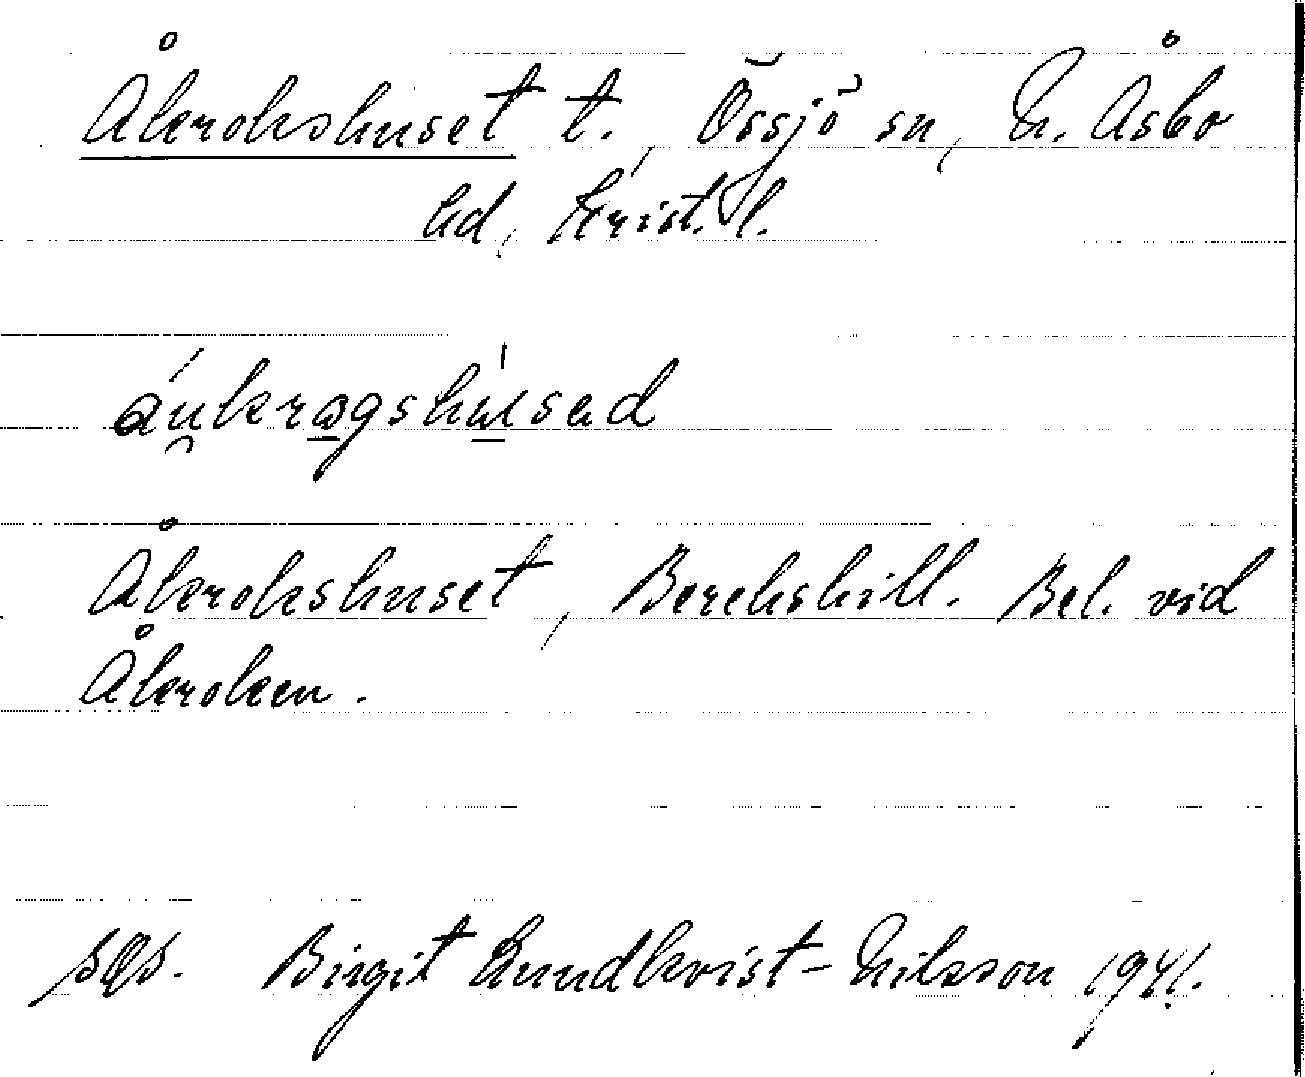 Åkrokshuset t., Össjö sn, N. Åsbo
hd, Krist. l.
áu̯krǫgshúsad
Åkrokshuset, Berekskill. Bel. vid
Åkroken.
Birgit Lundkvist-Nilsson 1941.